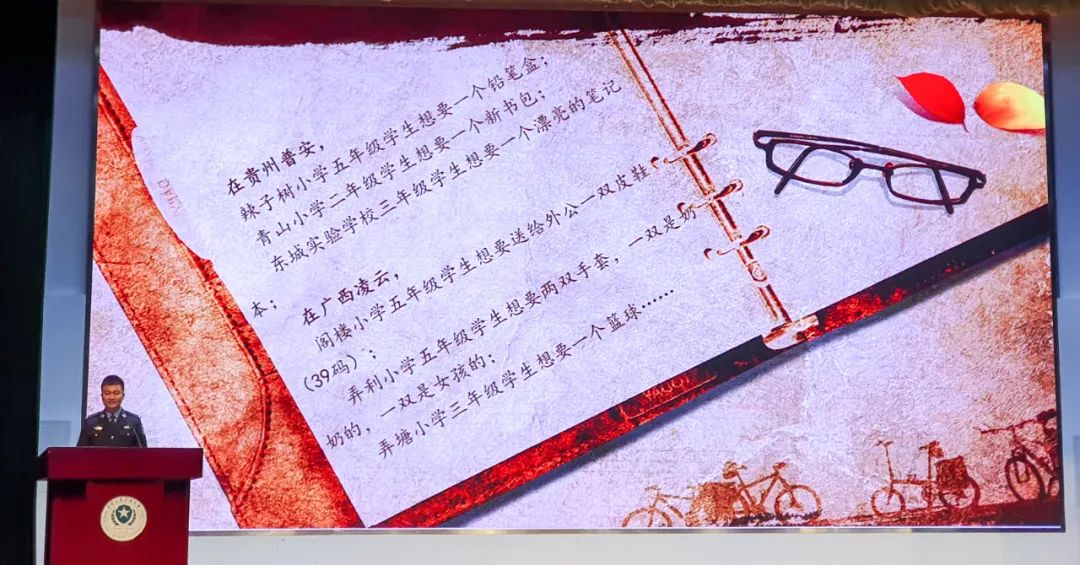 在贵州普安，
辣子树小学五年级学生想要一个铅笔盒；
青山小学二年级学生想要一个新书包；
东城实验学校三年级学生想要一个漂亮的笔记
本；
在广西凌云，
阁楼小学五年级学生想要送给外公一双皮鞋
（39码）；
弄利小学五年级学生想要两双手套，一双是奶
奶的，一双是女孩的；
弄塘小学三年级学生想要一个篮球……